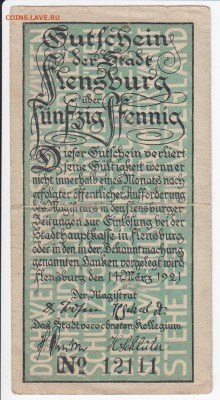 Gutschein
der Stadt
Flensburg
über
Fünfzig Pfennig
Dieser Gutschein verliert
seine Gültigkeit wenn er
nicht innerhalb eines Monats nach
erfolgter öffentlicher Aufforderung
des Magistrats in den Flensburger
Zeitungen zur Einlösung bei der
Stadthauptkasse in Flensburg
oder in den in der Bekanntmachung
genannten Banken vorgelegt wird
Flensburg den 14. März 1921
Der Magistrat
Das Stadtverordneten Kollegium
№ 12111